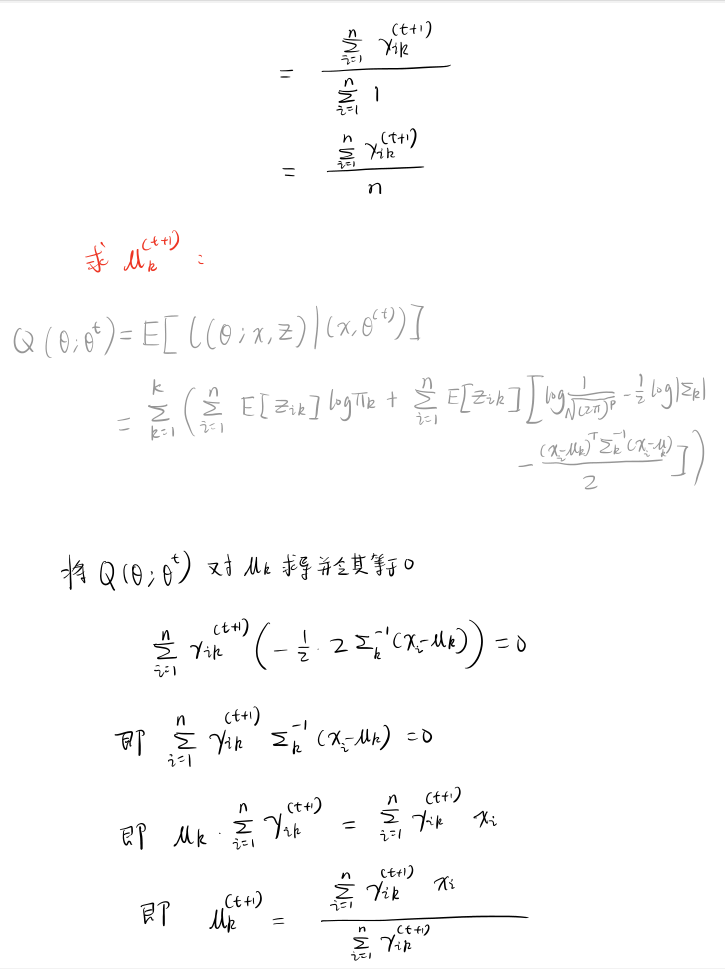 = \frac{\sum_{i=1}^{n} γ_{ik}^{(t+1)}}{\sum_{i=1}^{n} 1}
= \frac{\sum_{i=1}^{n} γ_{ik}^{(t+1)}}{n}
求 μ_k^{(t+1)} :
Q(θ;θ^t)=E[l(θ;x,z)|(x,θ^{(t)})]
= \sum_{k=1}^{k} (\sum_{i=1}^{n} E[z_{ik}] log π_k + \sum_{i=1}^{n} E[z_{ik}] [log \frac{1}{\sqrt{(2π)^p}} - \frac{1}{2} log|Σ_k|
- \frac{(x_i-μ_k)^T Σ_k^{-1} (x_i-μ_k)}{2}])
将 Q(θ;θ^t) 对 μ_k 求导并令其等于0
\sum_{i=1}^{n} γ_{ik}^{(t+1)} (-\frac{1}{2} · 2 Σ_k^{-1} (x_i-μ_k)) = 0
即 \sum_{i=1}^{n} γ_{ik}^{(t+1)} Σ_k^{-1} (x_i-μ_k) = 0
即 μ_k · \sum_{i=1}^{n} γ_{ik}^{(t+1)} = \sum_{i=1}^{n} γ_{ik}^{(t+1)} x_i
即 μ_k^{(t+1)} = \frac{\sum_{i=1}^{n} γ_{ik}^{(t+1)} x_i}{\sum_{i=1}^{n} γ_{ik}^{(t+1)}}